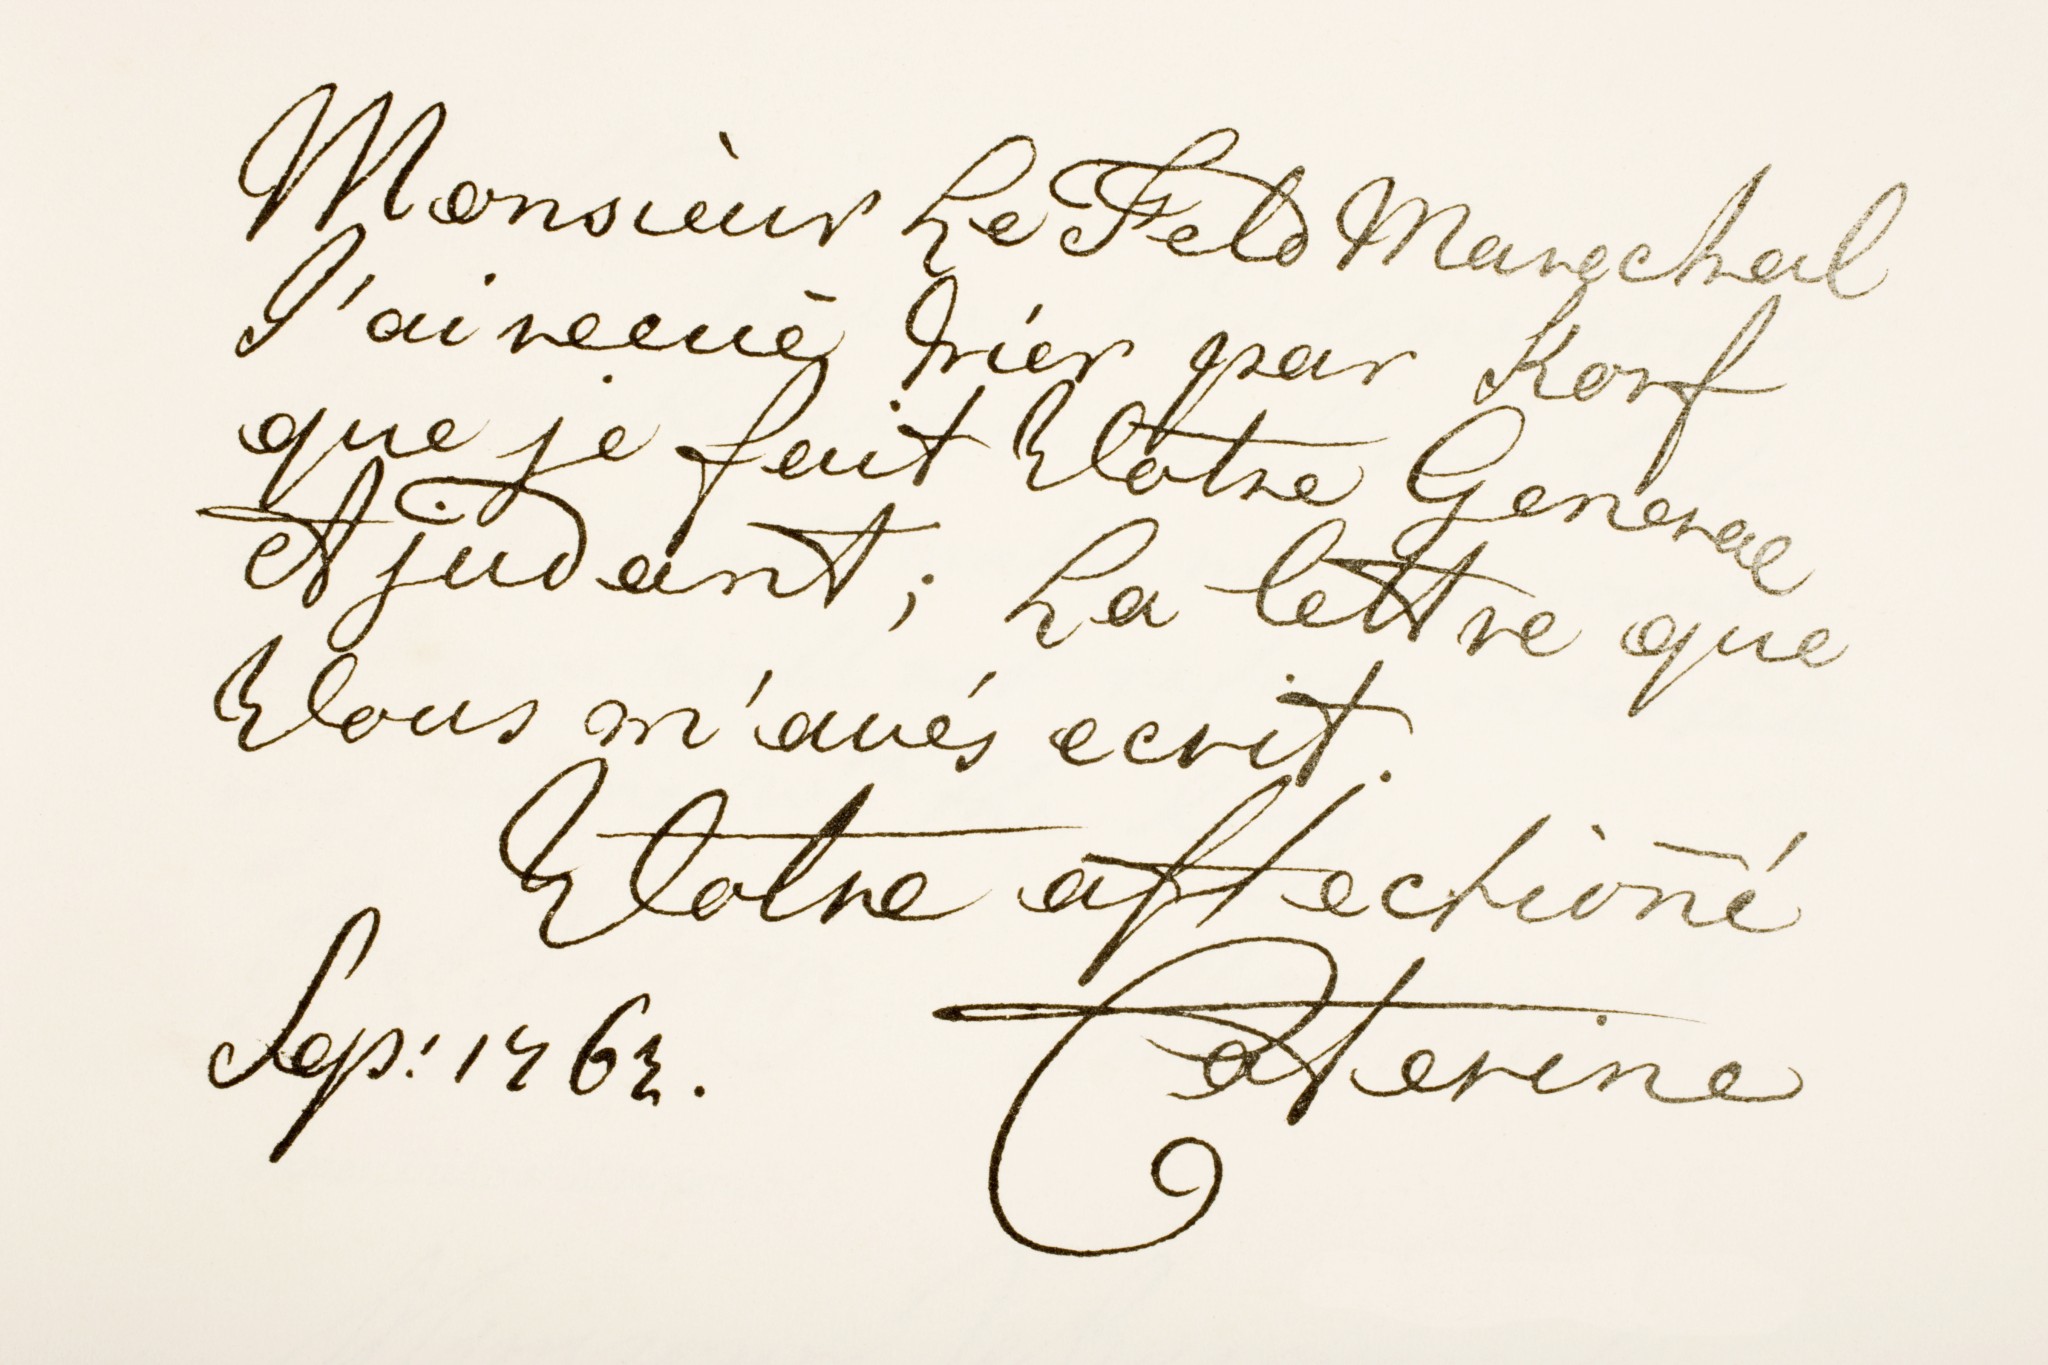 Monsieur Le Feld Marechal
J'ai recue hier par Korf
que je fait Votre General
Ajudant; La lettre que
Vous m'aués ecrit.
Votre affectioñé
Sep: 1763. Caterine